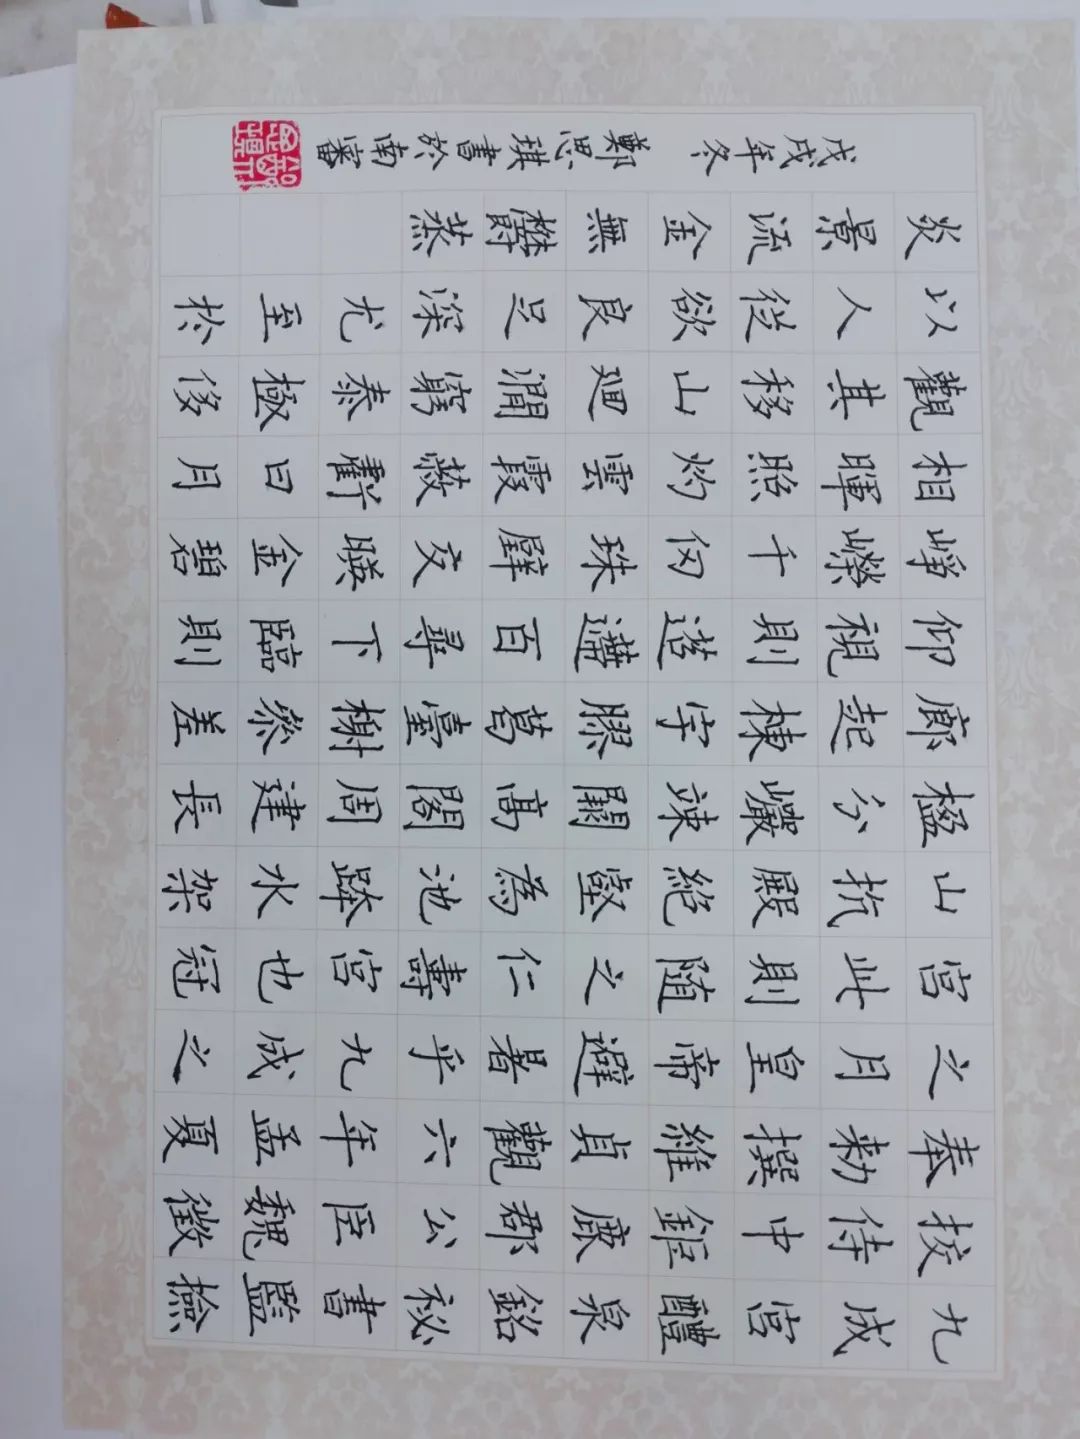 九成宮醴泉銘秘書監撿
挍侍中鉅鹿郡公臣魏徵
奉勅撰維貞觀六年孟夏
之月皇帝避暑乎九成之
宮此則隨之仁壽宮也冠
山抗殿絕壑為池跨水架
楹分巖竦闕高閣周建長
廊起棟宇膠葛臺榭參差
仰視則迢遰百尋下臨則
崢嶸千仞珠璧交暎金碧
相暉照灼雲霞蔽虧日月
觀其移山廻澗窮泰極侈
以人從欲良足深尤至於
炎景流金無欝蒸
戊戌年冬 鄭思琪書於南寧